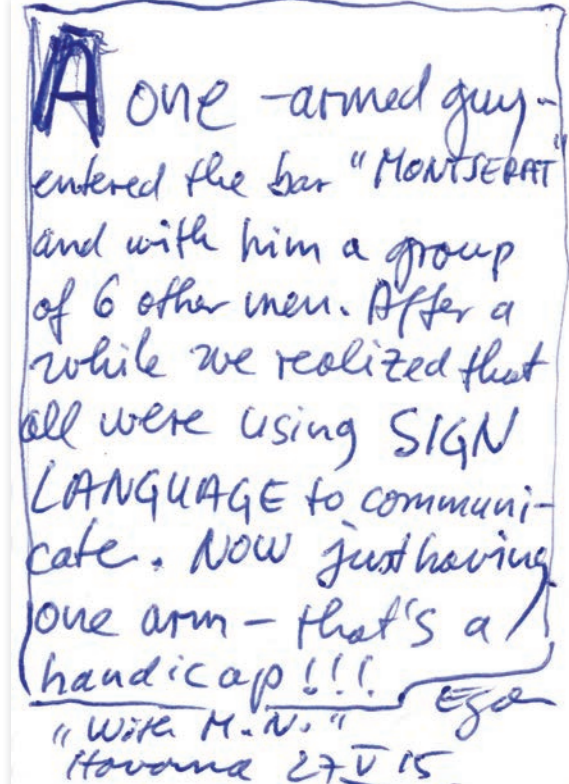 A one-armed guy-
entered the bar "MONTSERAT"
and with him a group
of 6 other men. After a
while we realized that
all were using SIGN
LANGUAGE to communi-
cate. NOW just having
one arm - that's a
handicap!!!
Egon
"With M.N."
Havanna 27 V 15